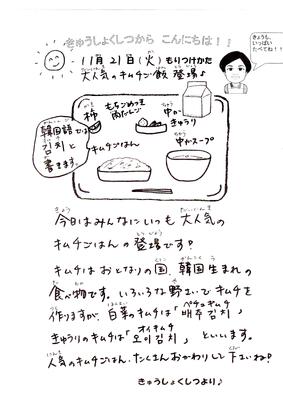 きゅうしょくしつから こんにちは！
11月21日(火)もりつけかた
大人気のキムチご飯登場♪
きょうも、
いっぱい
たべてね！！
韓国語では
김치と
書きます。
柿
もちごめつき
肉だんご
中か
きゅうり
キムチごはん
中かスープ
今日はみんなにいつも大人気の
キムチごはんの登場です？
キムチはおとなりの国、韓国生まれの
食べ物です。いろいろな野さいでキムチを
作りますが、白菜のキムチは「배추김치」
きゅうりのキムチは「오이김치」といいます。
人気のキムチごはん、たくさんおかわりして下さいね？
きゅうしょくしつより♪